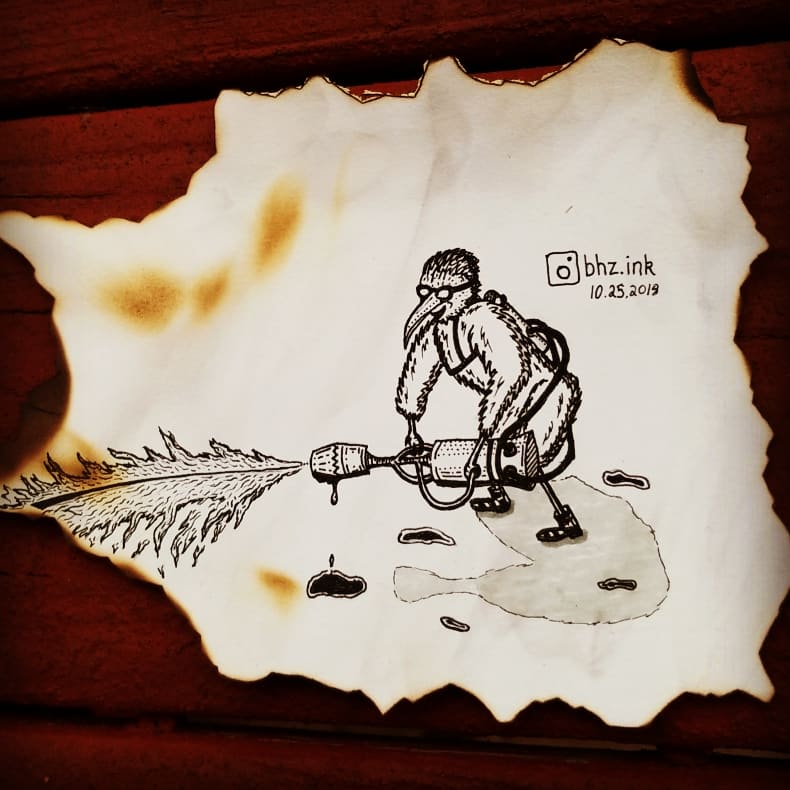 bhz.ink
10.25.2019